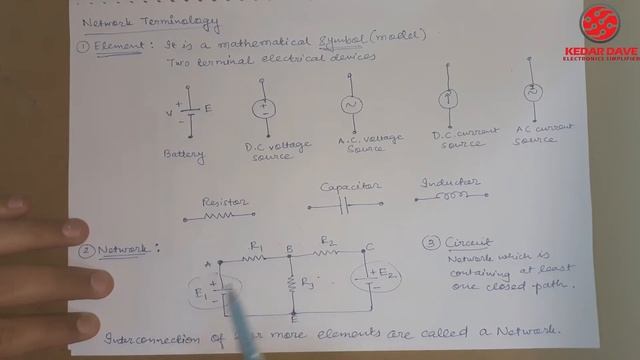 Network Terminology
KEDAR DAVE
ELECTRONICS SIMPLIFIED
① Element : It is a mathematical symbol (model)
Two terminal electrical devices
V + - E
+ -
Battery
D.C voltage source
A.C. voltage source
D.C current source
AC current source
Resistor
Capacitor
Inductor
② Network :
A R1 B R2 C
E1 + -
R3
+ - E2
E
③ Circuit
Network which is
containing at least
one closed path.
Interconnection of more elements are called a Network.